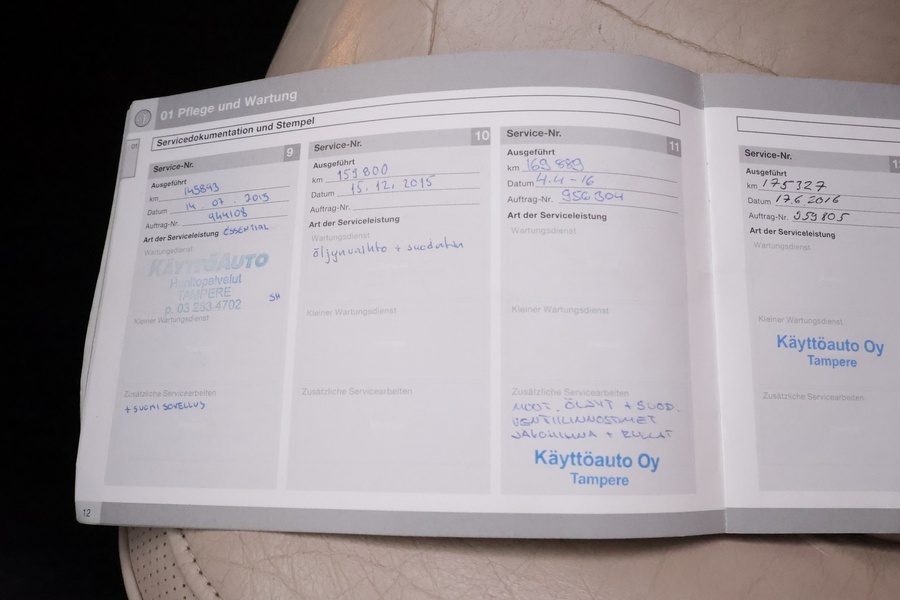 01 Pflege und Wartung
Servicedokumentation und Stempel
01
Service-Nr. 9
Ausgeführt
km 145893
Datum 14.07.2015
Auftrag-Nr. 944108
Art der Serviceleistung ESSENTIAL
Wartungsdienst
KÄYTTÖAUTO
Huoltopalvelut
TAMPERE
p. 03 253 4702 SH
Kleiner Wartungsdienst
Zusätzliche Servicearbeiten
+ SUOMI SOVELLUS
Service-Nr. 10
Ausgeführt
km 159800
Datum 15.12.2015
Auftrag-Nr.
Art der Serviceleistung
Wartungsdienst
öljynvaihto + suodatin
Kleiner Wartungsdienst
Zusätzliche Servicearbeiten
Service-Nr. 11
Ausgeführt
km 169889
Datum 4.4-16
Auftrag-Nr. 956304
Art der Serviceleistung
Wartungsdienst
Kleiner Wartungsdienst
Zusätzliche Servicearbeiten
MOOT. ÖLJYT + SUOD.
VENTIILINNOSTIMET
JAKOHIHNA + RULLAT
Käyttöauto Oy
Tampere
Service-Nr.
Ausgeführt
km 175327
Datum 17.6.2016
Auftrag-Nr. 959805
Art der Serviceleistung
Wartungsdienst
Kleiner Wartungsdienst
Käyttöauto Oy
Tampere
Zusätzliche Servicearbeiten
12